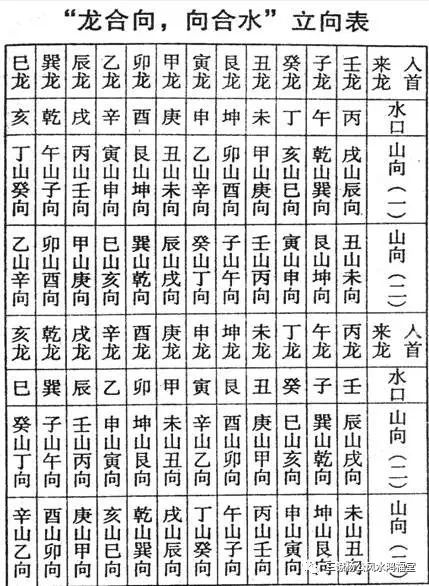 “龙合向，向合水”立向表
人首来龙 壬龙 子龙 癸龙 丑龙 艮龙 寅龙 甲龙 卯龙 乙龙 辰龙 巽龙 巳龙
水口 丙 午 丁 未 坤 申 庚 酉 辛 戌 乾 亥
山向（一） 戌山辰向 乾山巽向 亥山巳向 甲山庚向 卯山酉向 乙山辛向 丑山未向 艮山坤向 寅山申向 丙山壬向 午山子向 丁山癸向
山向（二） 丑山未向 艮山坤向 寅山申向 壬山丙向 子山午向 癸山丁向 辰山戌向 巽山乾向 巳山亥向 甲山庚向 卯山酉向 乙山辛向
人首来龙 丙龙 午龙 丁龙 未龙 坤龙 申龙 庚龙 酉龙 辛龙 戌龙 乾龙 亥龙
水口 壬 子 癸 丑 艮 寅 甲 卯 乙 辰 巽 巳
山向（二） 辰山戌向 巽山乾向 巳山亥向 庚山甲向 酉山卯向 辛山乙向 未山丑向 坤山艮向 申山寅向 壬山丙向 子山午向 癸山丁向
山向（ 未山丑向 坤山艮向 申山寅向 丙山壬向 午山子向 丁山癸向 戌山辰向 乾山巽向 亥山巳向 庚山甲向 酉山卯向 辛山乙向